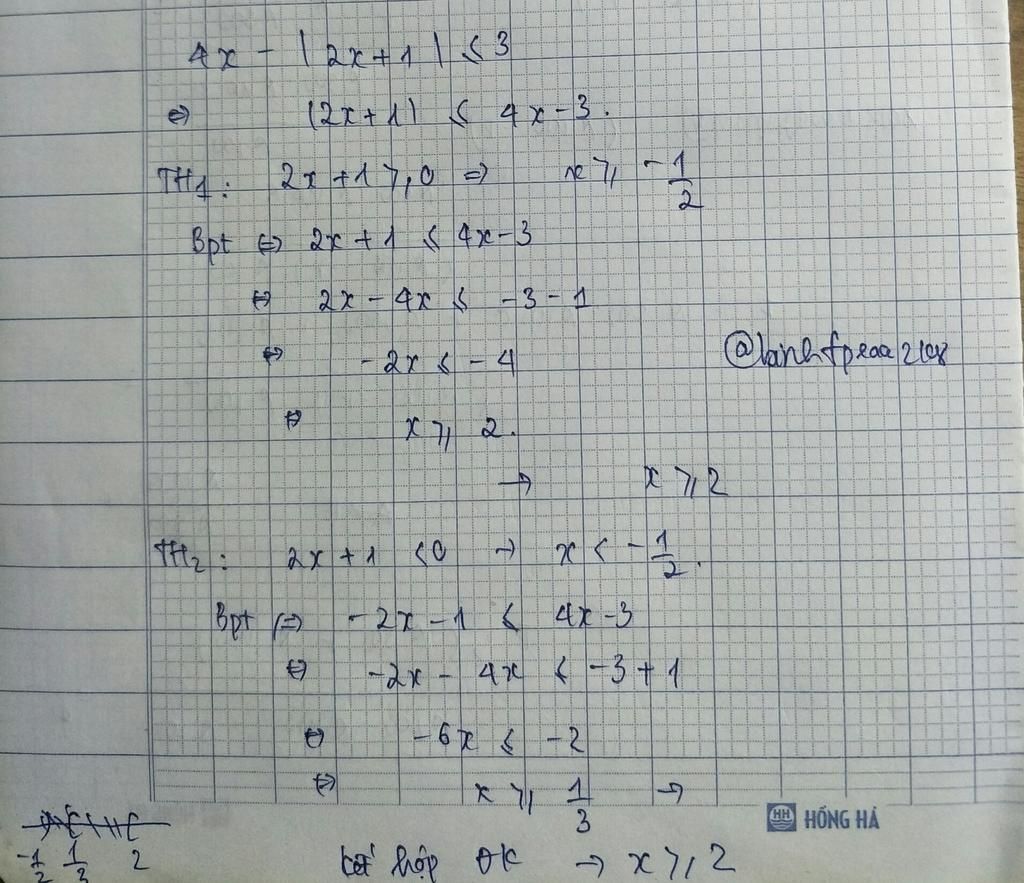 4x - |2x+1| ≤ 3
⇔ |2x+1| ≤ 4x-3.
TH1: 2x+1 ≥ 0 ⇒ x ≥ -1/2
Bpt ⇔ 2x+1 ≤ 4x-3
⇔ 2x - 4x ≤ -3-1
⇔ -2x ≤ -4
⇔ x ≥ 2.
→ x ≥ 2
TH2: 2x+1 < 0 → x < -1/2.
Bpt ⇔ -2x-1 ≤ 4x-3
⇔ -2x - 4x ≤ -3+1
⇔ -6x ≤ -2
⇔ x ≥ 1/3 →
HH HỒNG HÀ
-1/2 1/3 2
kết hợp ĐK → x ≥ 2